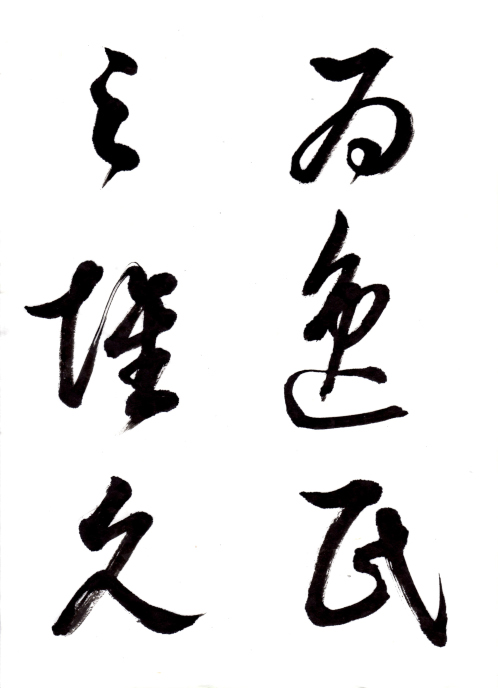 為逸民
之懷久